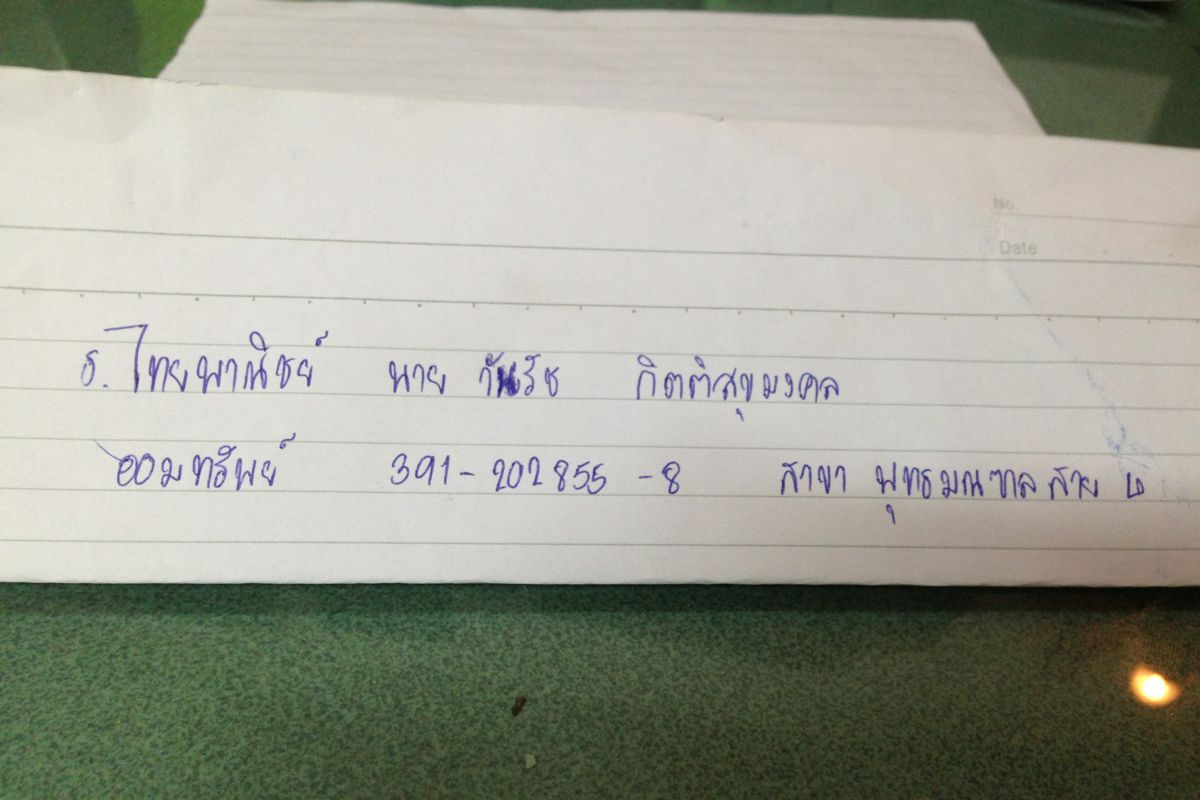 No.
Date
ธ. ไทยพาณิชย์ นาย กิตติสุขมงคล
ออมทรัพย์ 391-202855-8 สาขา พุทธมณฑลสาย